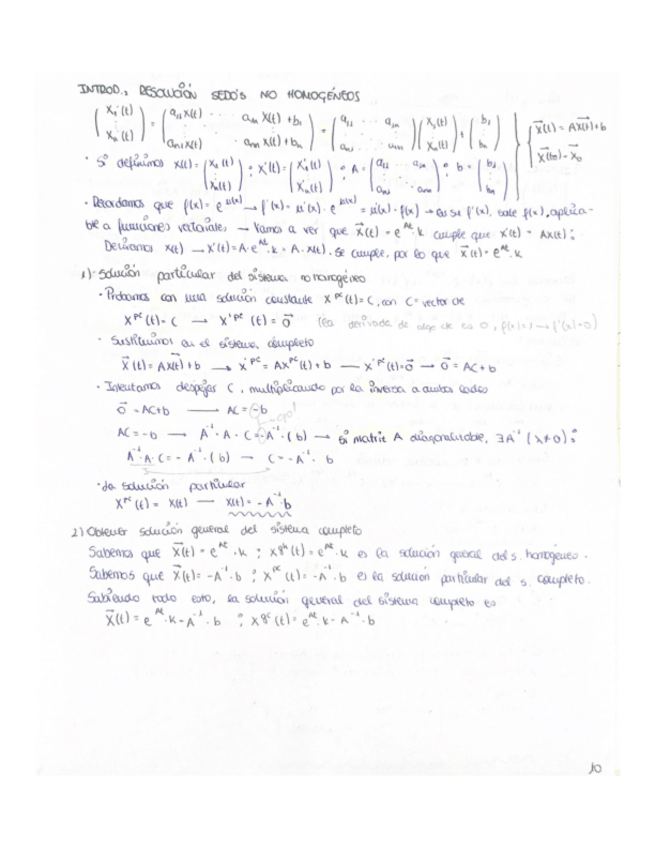 INTROD., RESOLUCIÓN SEDO'S NO HOMOGÉNEOS
(x₁'(t) ⋮ xₙ'(t)) = (a₁₁x(t) ··· a₁ₙx(t)+b₁ ⋮ aₙ₁x(t) aₙₙx(t)+bₙ) = (a₁₁ ··· a₁ₙ ⋮ aₙ₁ ··· aₙₙ)(x₁(t) ⋮ xₙ(t)) + (b₁ ⋮ bₙ) } { x⃗(t) = Ax⃗(t)+b x⃗(t₀) = x⃗₀
· Si definimos x(t) = (x₁(t) ⋮ xₙ(t)) ; x'(t) = (x₁'(t) ⋮ xₙ'(t)) ; A = (a₁₁ ··· a₁ₙ ⋮ aₙ₁ ··· aₙₙ) ; b = (b₁ ⋮ bₙ)
· Recordamos que f(x) = e^u(x) → f'(x) = u'(x) · e^u(x) = u'(x) · f(x) → en su f'(x), sale f(x), aplica-
ble a funciones vectoriales → Vamos a ver que x⃗(t) = e^At · k cumple que x'(t) = Ax(t):
Derivamos x(t) → x'(t) = A · e^At · k = A · x(t). Se cumple, por lo que x⃗(t) = e^At · k
1)- Solución particular del sistema no homogéneo
· Probamos con una solución constante x^pc(t) = C, con C = vector cte
x^pc(t) = C → x'^pc(t) = 0⃗ (la derivada de algo cte es 0, f(x)=1 → f'(x)=0)
· Sustituimos en el sistema completo
x⃗(t) = Ax⃗(t) + b → x'^pc = Ax^pc(t) + b — x'^pc(t) = 0⃗ → 0⃗ = AC + b
· Intentamos despejar C, multiplicando por la inversa a ambos lados
0⃗ = AC+b → AC = -b ojo!
AC = -b → A⁻¹ · A · C = -A⁻¹ · (b) → Si matriz A diagonalizable, ∃A⁻¹ (λ≠0):
A⁻¹ · A · C = -A⁻¹ · (b) → C = -A⁻¹ · b
· La solución particular
x^pc(t) = x(t) — x(t) = -A⁻¹ · b
2) Obtener solución general del sistema completo
Sabemos que x⃗(t) = e^At · k ; x^gh(t) = e^At · k es la solución general del s. homogéneo.
Sabemos que x⃗(t) = -A⁻¹ · b ; x^pc(t) = -A⁻¹ · b es la solución particular del s. completo.
Sabiendo todo esto, la solución general del sistema completo es
x⃗(t) = e^At · k - A⁻¹ · b ; x^gc(t) = e^At · k - A⁻¹ · b
10